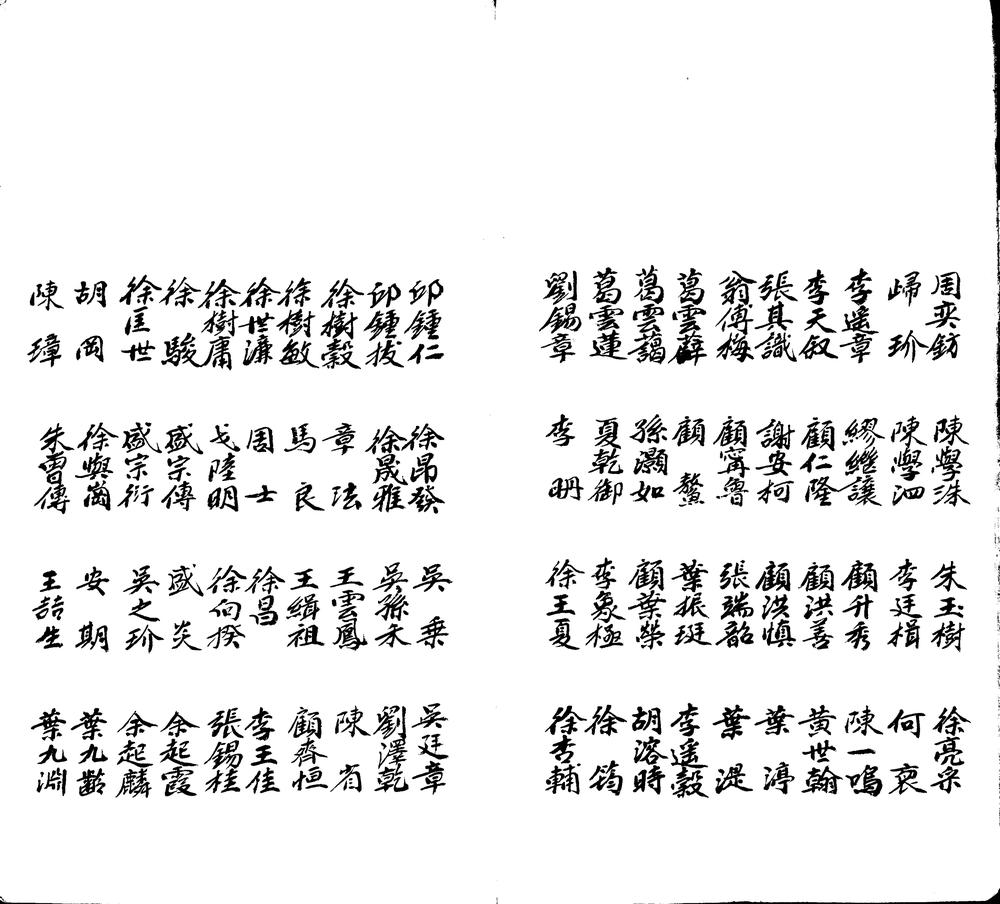 周奕鈁 陳學洙 朱玉樹 徐亮采
歸玠 陳學泗 李廷楫 何衮
李遥章 繆繼讓 顧升秀 陳一鳴
李天叙 顧仁隆 顧洪善 黄世翰
張其識 謝安柯 顧洪慎 葉渟
翁傅梅 顧甯魯 張端韶 葉湜
葛雲薜 顧鰲 葉振珽 李遥穀
葛雲藹 孫灝如 顧葉榮 胡溶時
葛雲蓮 夏乾御 李象極 徐筠
劉錫章 李冊 徐王夏 徐杏輔
邱鍾仁 徐昂發 吳乗 吳廷章
邱鍾拔 徐晟雅 吳孫禾 劉澤乾
徐樹穀 章法 王雲鳳 陳省
徐樹敏 馬良 王緝祖 顧齊恒
徐世濂 周士 徐昌 李王佳
徐樹庸 戈陸明 徐向揆 張錫桂
徐駿 盛宗傳 盛炎 余起霞
徐匡世 盛宗衍 吳之玠 余起麟
胡岡 徐與崗 安期 葉九齡
陳璋 朱雷傳 王喆生 葉九淵